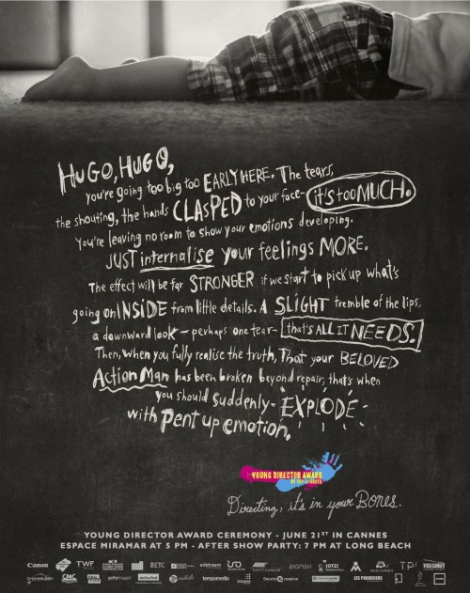 HUGO, HUGO,
you're going too big too EARLY HERE. The tears,
the shouting, the hands CLASPED to your face- it's too MUCH.
You're leaving no room to show your emotions developing.
JUST internalise your feelings MORE.
The effect will be far STRONGER if we start to pick up what's
going on INSIDE from little details. A SLIGHT tremble of the lips,
a downward look - perhaps one tear - that's ALL IT NEEDS.
Then, when you fully realise the truth, That your BELOVED
Action Man has been broken beyond repair, that's when
you should suddenly - EXPLODE -
with pent up emotion.
YOUNG DIRECTOR AWARD
Directing, it's in your BONES.
YOUNG DIRECTOR AWARD CEREMONY - JUNE 21ST IN CANNES
ESPACE MIRAMAR AT 5 PM - AFTER SHOW PARTY: 7 PM AT LONG BEACH
Canon TWF BETC
CMC